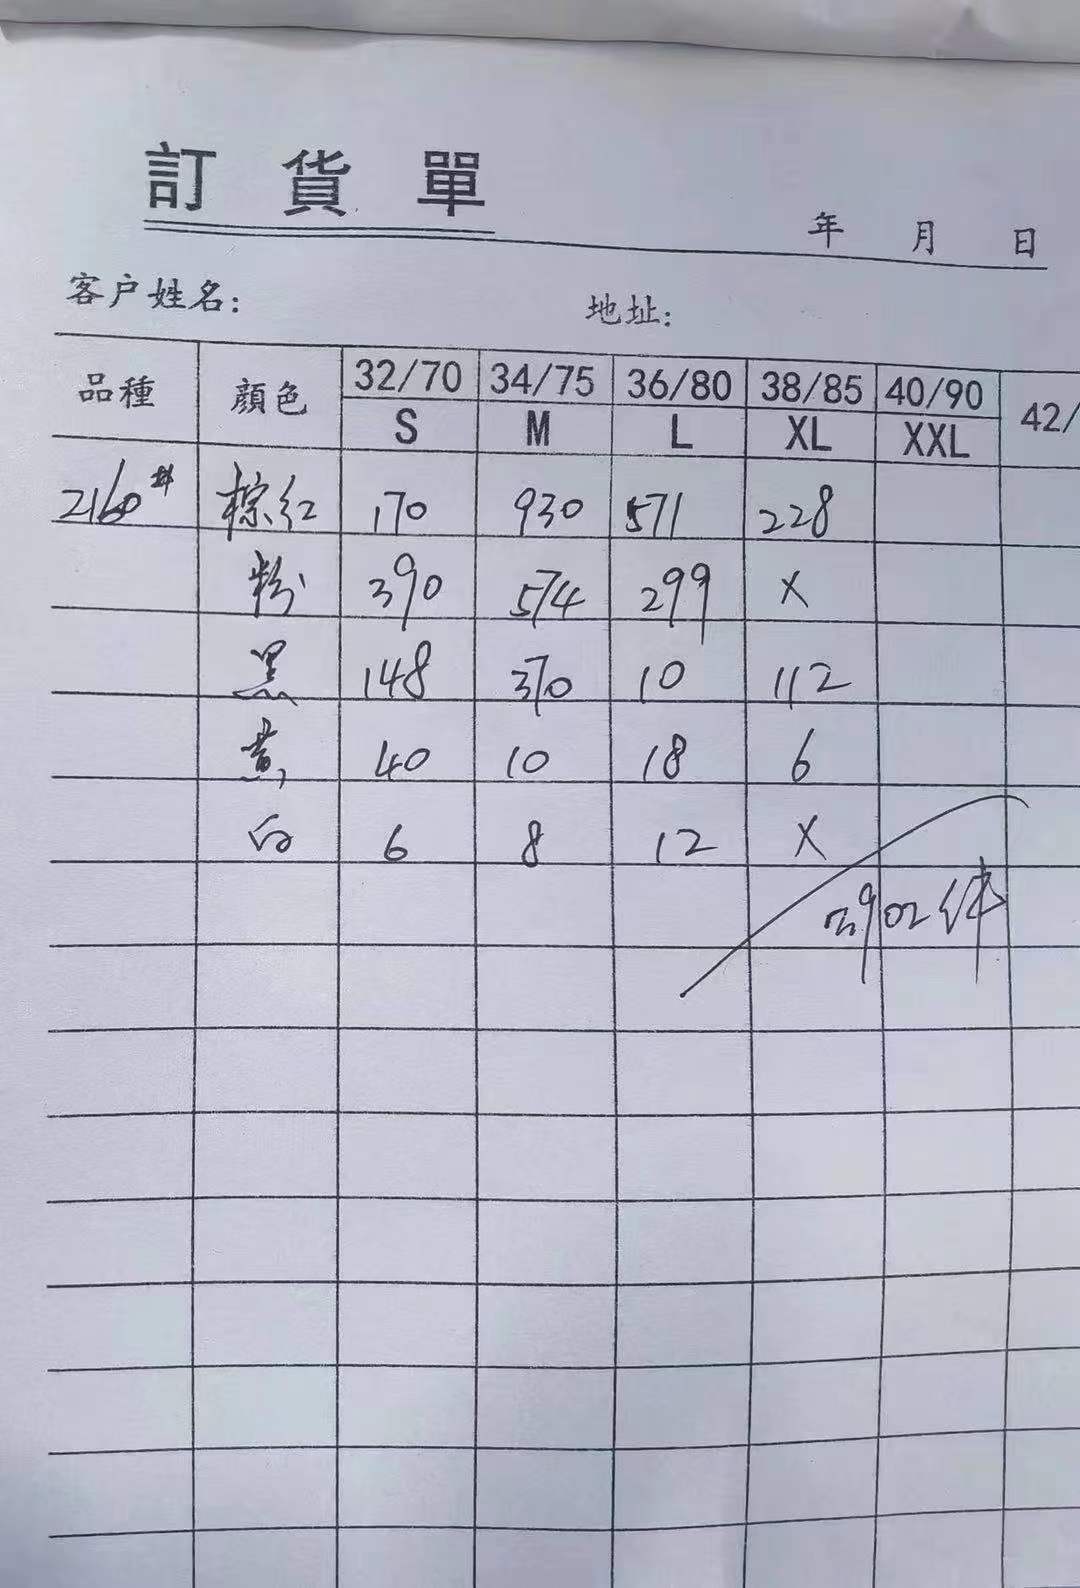 訂貨單
年 月 日
客户姓名: 地址:
品種 顏色 32/70 34/75 36/80 38/85 40/90 42/
S M L XL XXL
2160# 棕红 170 930 571 228
粉 390 574 299 X
黑 148 370 10 112
黄 40 10 18 6
白 6 8 12 X
3902件